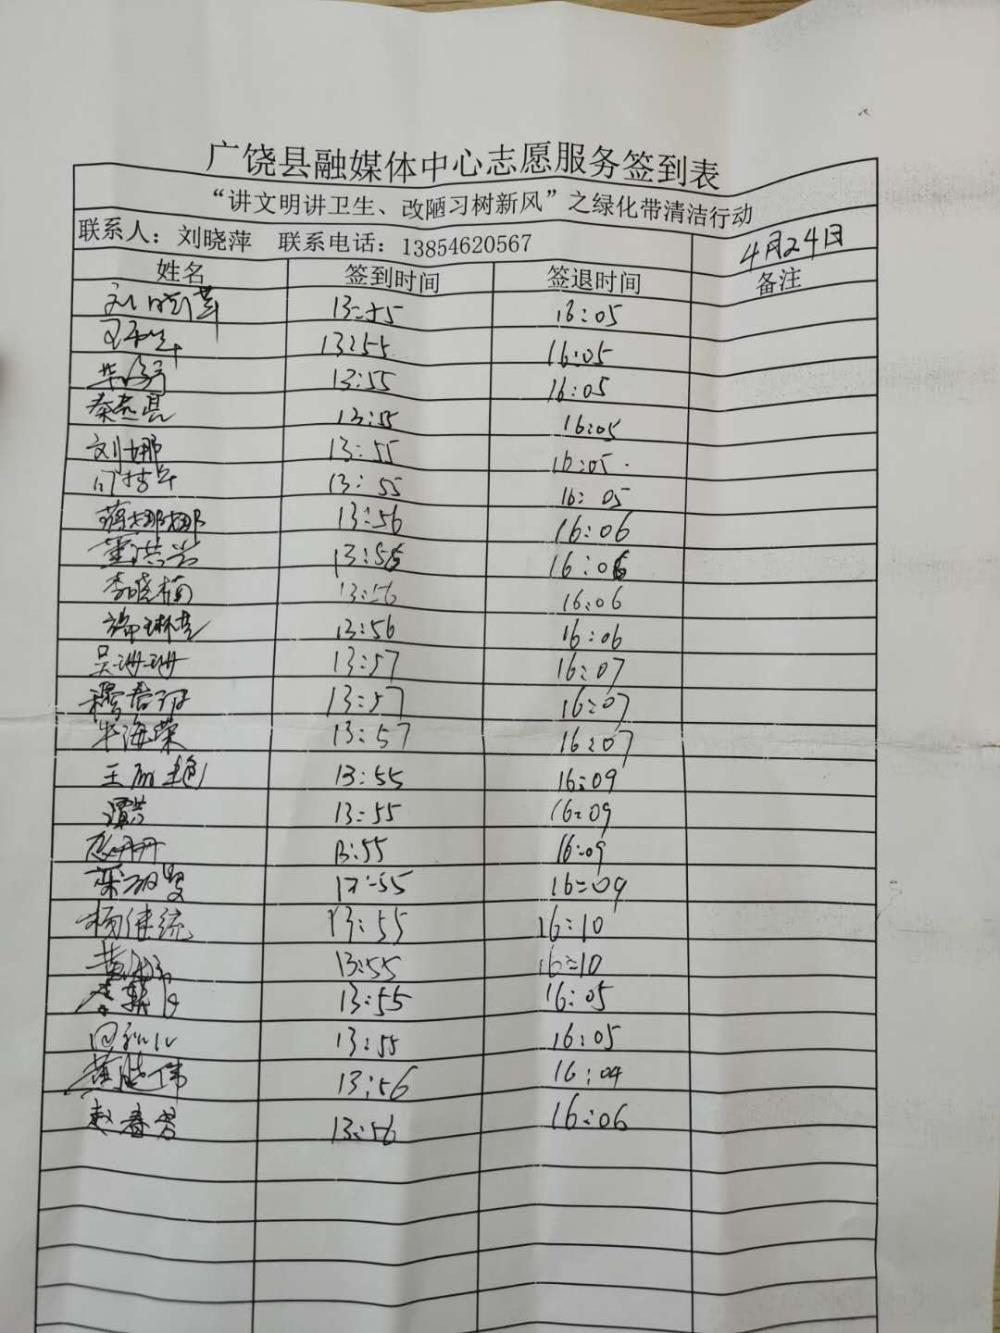 广饶县融媒体中心志愿服务签到表
“讲文明讲卫生、改陋习树新风”之绿化带清洁行动
联系人：刘晓萍 联系电话：13854620567 4月24日
姓名 签到时间 签退时间 备注
刘晓萍 13:55 16:05
13:55 16:05
13:55 16:05
13:55 16:05
刘娜 13:55 16:05
13:55 16:05
蒋娜娜 13:56 16:06
董洪岩 13:56 16:06
李晓楠 13:56 16:06
13:56 16:06
吴珊珊 13:57 16:07
13:57 16:07
牛海荣 13:57 16:07
王丽艳 13:55 16:09
13:55 16:09
13:55 16:09
13:55 16:09
杨继统 13:55 16:10
13:55 16:10
13:55 16:05
13:55 16:05
黄晓伟 13:56 16:04
赵春芳 13:56 16:06